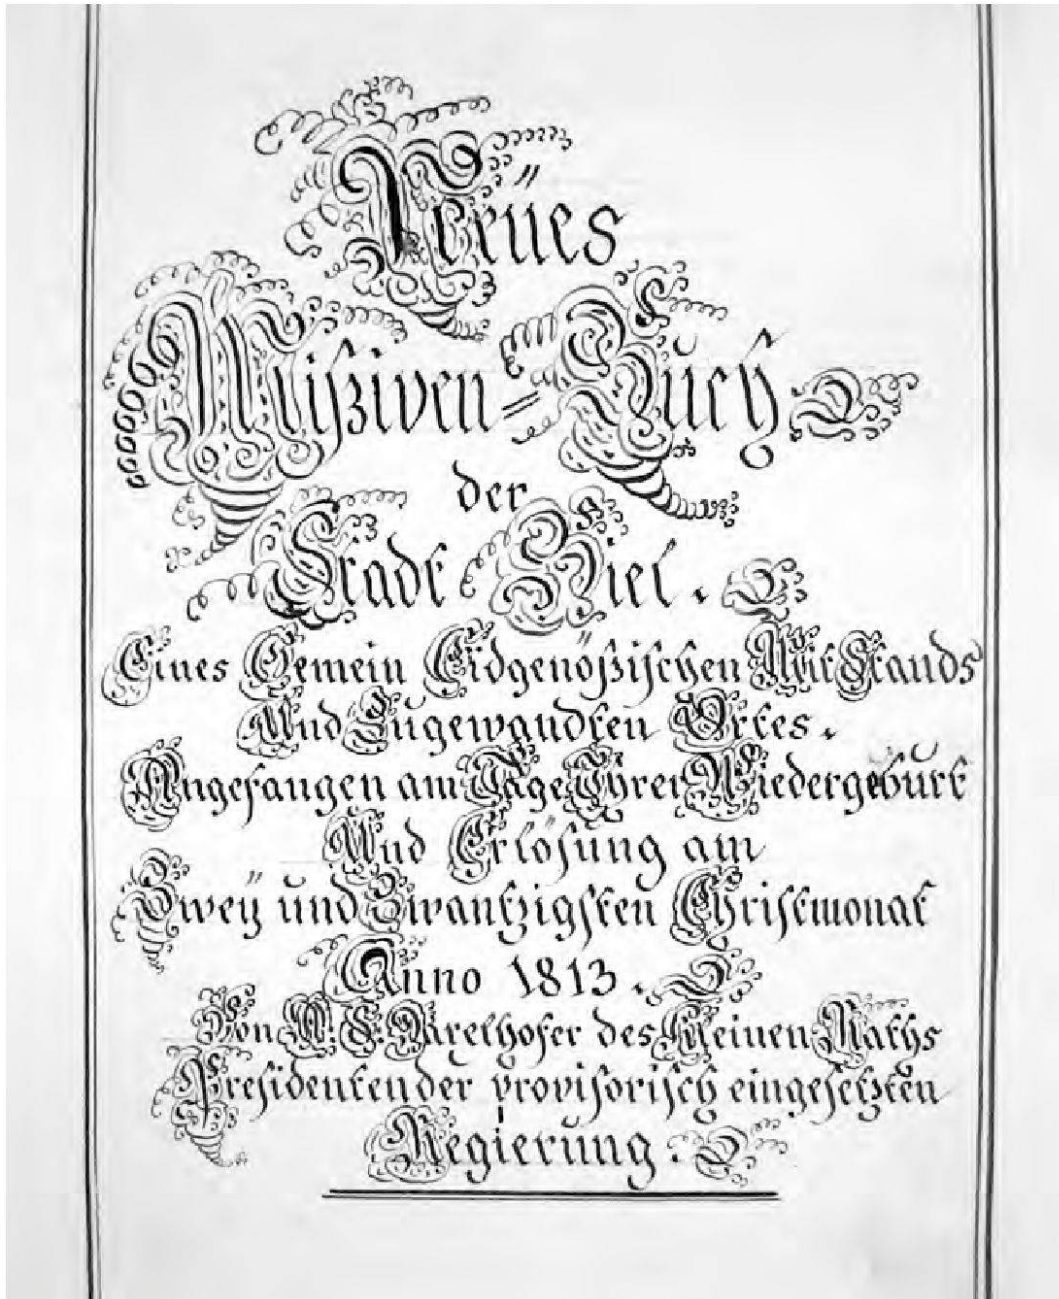 Neües
Mißiven=Bůch
der
Stadt Biel.
Eines Gemein Eidgenößischen Mit Stands
Und Zugewandten Ortes.
Angefangen am Tage Ihrer Wiedergebůrt
Und Erlösung am
Zweÿ ůnd Zwantzigsten Christmonat
Anno 1813.
Von Karelhofer des Kleinen Raths
Presidenten der provisorisch eingesetzten
Regierung: